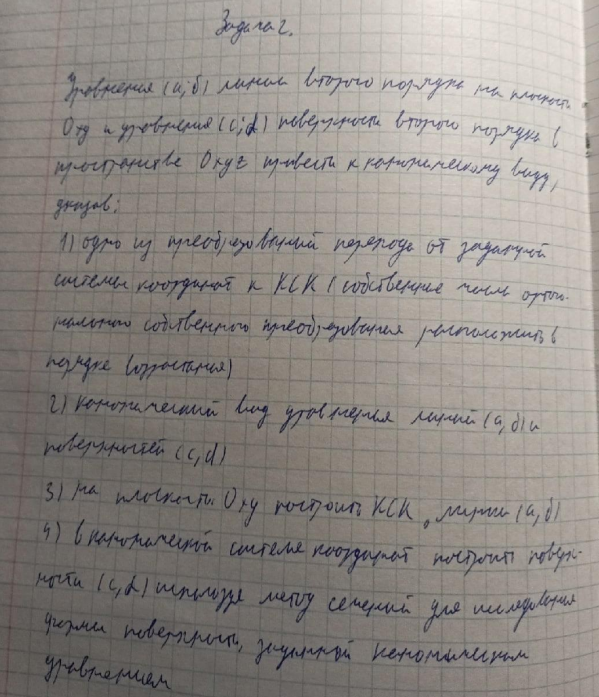 Задача 2.
Уравнения (а,б) линий второго порядка на плоскости
Oxy и уравнения (c,d) поверхности второго порядка в
пространстве Oxyz привести к каноническому виду,
указав:
1) одно из преобразований перехода от заданной
системы координат к КСК (собственные числа ортого-
нального собственного преобразования расположить в
порядке возрастания)
2) канонический вид уравнения линий (а,б) и
поверхностей (c,d)
3) на плоскости Oxy построить КСК, линии (а,б)
4) в канонической системе координат построить поверх-
ности (c,d) используя метод сечений для исследования
формы поверхности, заданной каноническим
уравнением